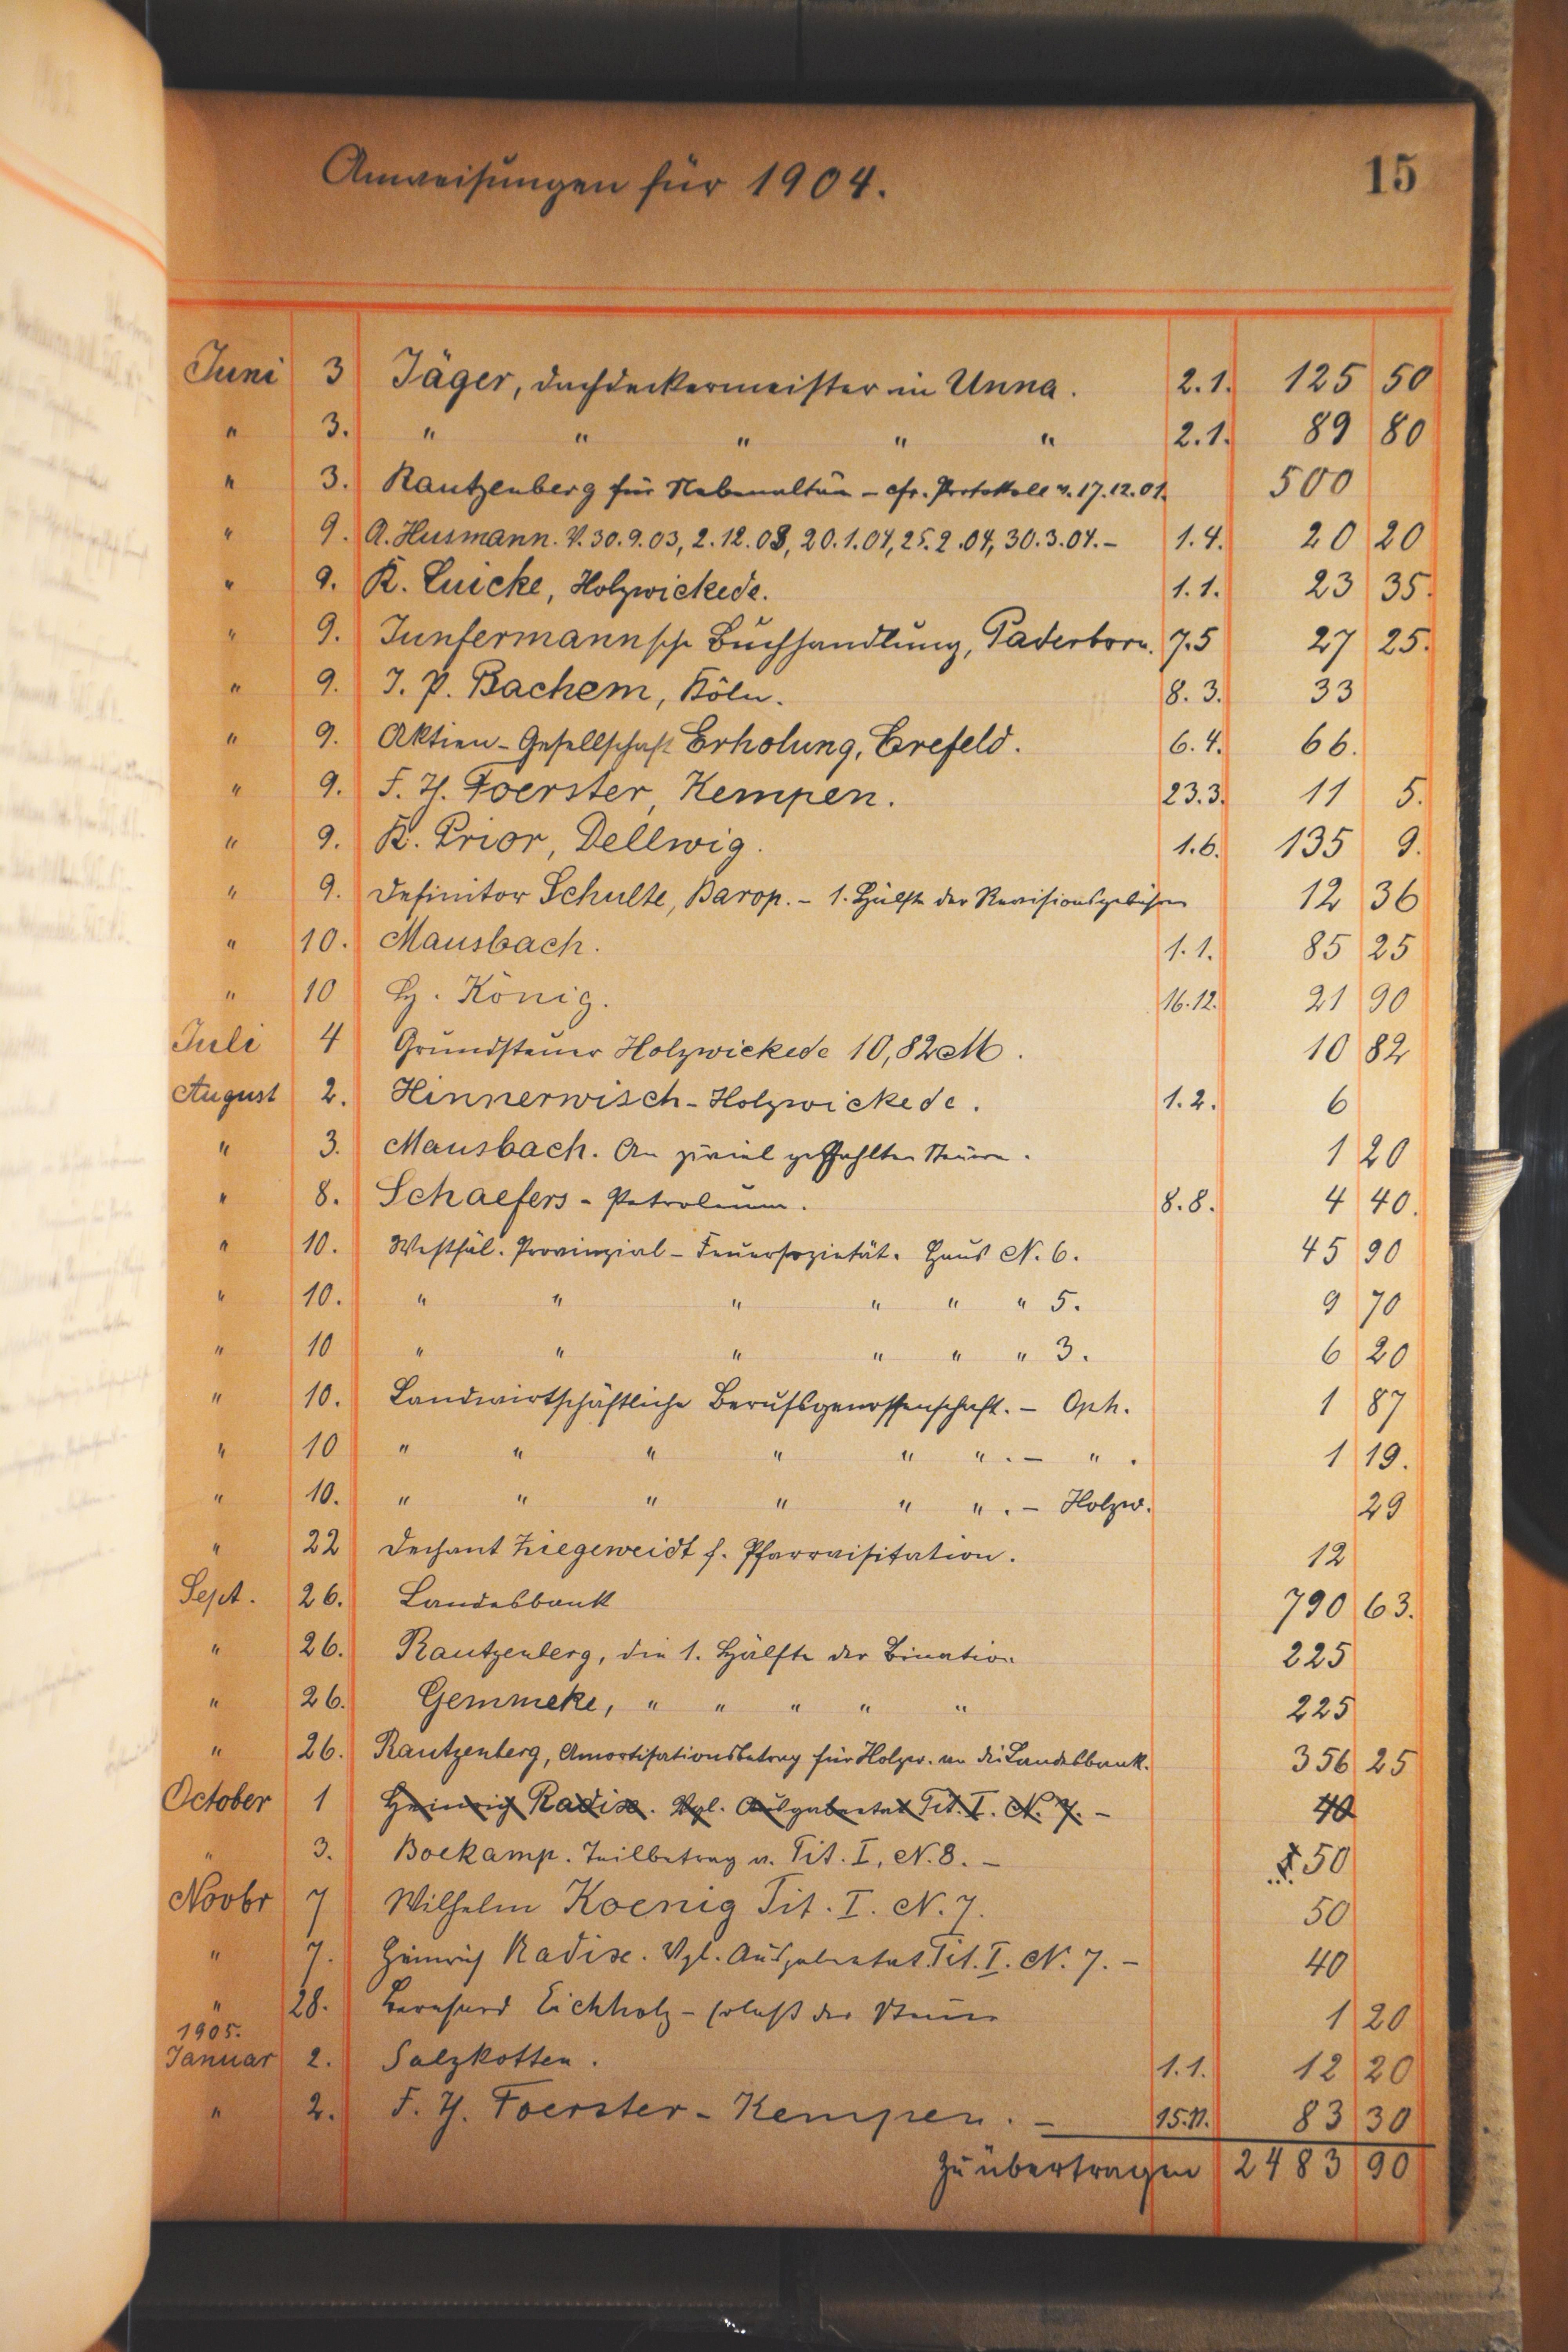 Anweisungen für 1904. 15
Juni 3 Jäger, Dachdeckermeister in Unna. 2.1. 125 50
" 3. " " " " " 2.1. 89 80
" 3. Rautzenberg für Nebenaltar - cfr. Protokoll v. 17.12.01. 500
" 9. A. Husmann. V. 30.9.03, 2.12.03, 20.1.04, 25.2.04, 30.3.04. - 1.4. 20 20
" 9. K. Luicke, Holzwickede. 1.1. 23 35.
" 9. Junfermannsche Buchhandlung, Paderborn. 7.5 27 25.
" 9. J. P. Bachem, Köln. 8.3. 33
" 9. Aktien-Gesellschaft Erholung, Crefeld. 6.4. 66.
" 9. F. H. Foerster, Kempen. 23.3. 11 5.
" 9. K. Prior, Dellwig. 1.6. 135 9.
" 9. Definitor Schulte, Barop. - 1. Hälfte der Revisionsgebühren 12 36
" 10. Mausbach. 1.1. 85 25
" 10 Hg. König. 16.12. 21 90
Juli 4 Grundsteuer Holzwickede 10,82 M. 10 82
August 2. Hinnerwisch-Holzwickede. 1.2. 6
" 3. Mausbach. An zuviel gezahlter Steuern. 1 20
" 8. Schaefers - Petroleum. 8.8. 4 40.
" 10. Westfäl. Provinzial-Feuersozietät. Haus N. 6. 45 90
" 10. " " " " " " 5. 9 70
" 10 " " " " " " 3. 6 20
" 10. Landwirtschäftliche Berufsgenossenschaft. - Oph. 1 87
" 10 " " " " " " . - " . 1 19.
" 10. " " " " " " . - Holzw. 29
" 22 Dechant Ziegeweidt f. Pfarrvisitation. 12
Sept. 26. Landesbank 790 63.
" 26. Rautzenberg, die 1. Hälfte der Bination 225
" 26. Gemmeke, " " " " " 225
" 26. Rautzenberg, Amortisationsbetrag für Holzw. an die Landesbank. 356 25
October 1 Heinrich Radix. Vgl. Ausgabeetat Tit. I. N. 7. - 40
" 3. Boekamp. Teilbetrag v. Tit. I, N. 8. - 50
Novbr 7 Wilhelm Koenig Tit. I. N. 7. 50
" 7. Heinrich Radix. Vgl. Ausgabeetat Tit. I. N. 7. - 40
" 28. Bernhard Eichholz - Erlaß der Steuer 1 20
1905.
Januar 2. Salzkotten. 1.1. 12 20
" 2. F. H. Foerster - Kempen. - 15.11. 83 30
Zu übertragen 2483 90